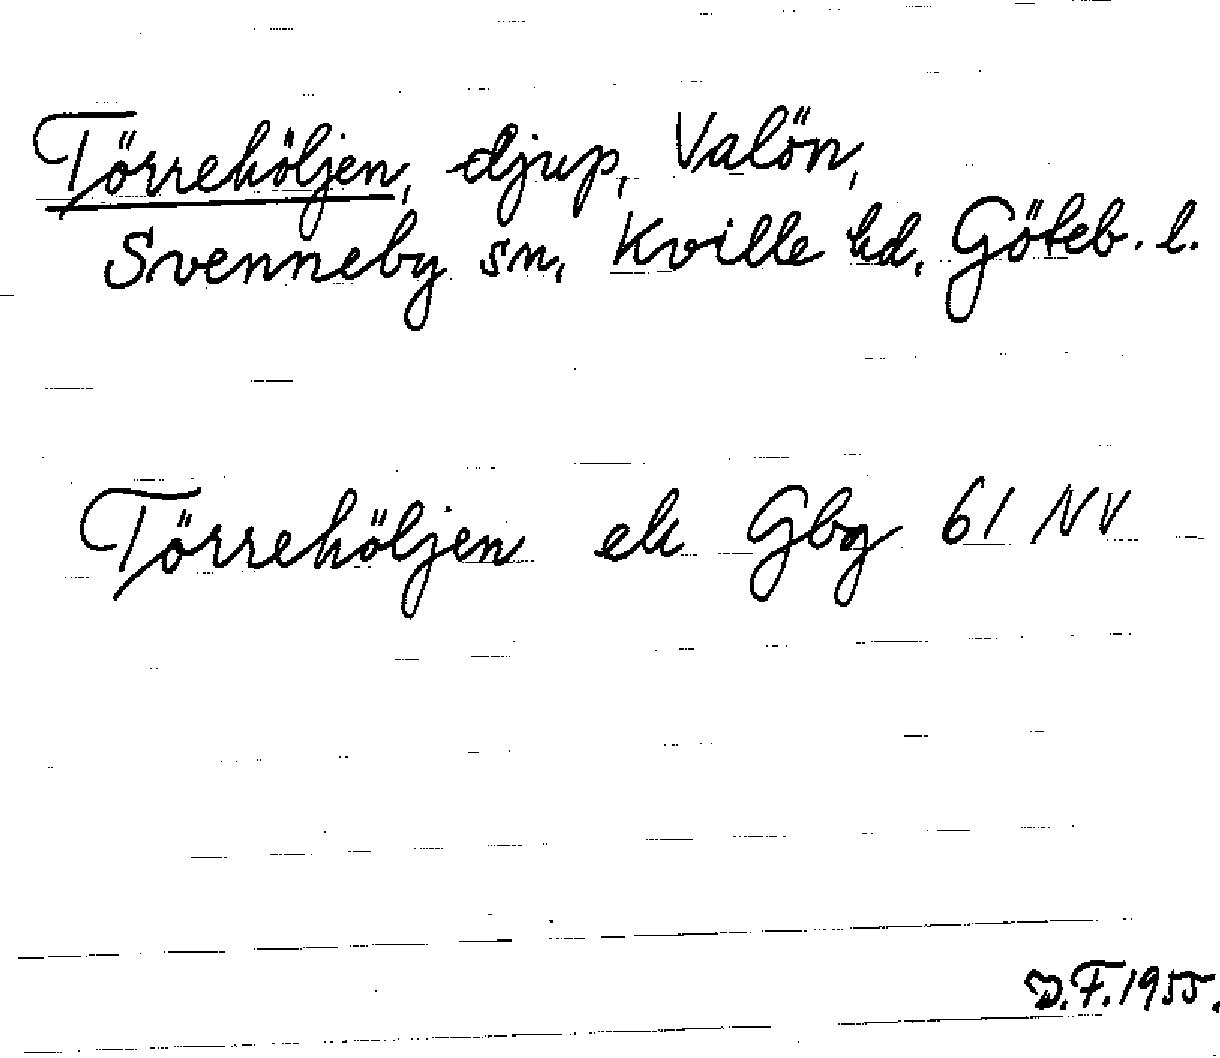 Törrehöljen, djup, Valön,
Svenneby sn, Kville hd, Göteb. l.
Törrehöljen ek Gbg 61 NV
D.F. 1955.